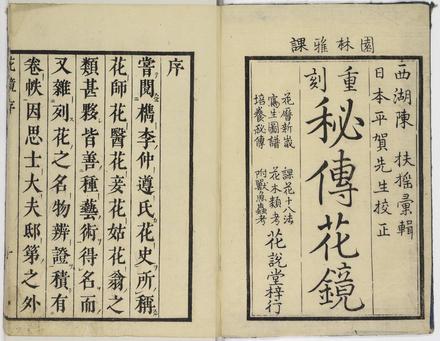 園林雅課
西湖陳扶搖彙輯
日本平賀先生校正
重刻
秘傳花鏡
花曆新裁 課花十八法
寫生圖譜 花木類考
培養秘傳 附獸魚蟲考
花説堂梓行
序
嘗閲檇李仲遵氏花史所稱
花師花醫花妾花姑花翁之
類甚夥皆善種藝術得名而
又雜列花之名物辨證積有
卷帙因思士大夫邸第之外
花鏡序